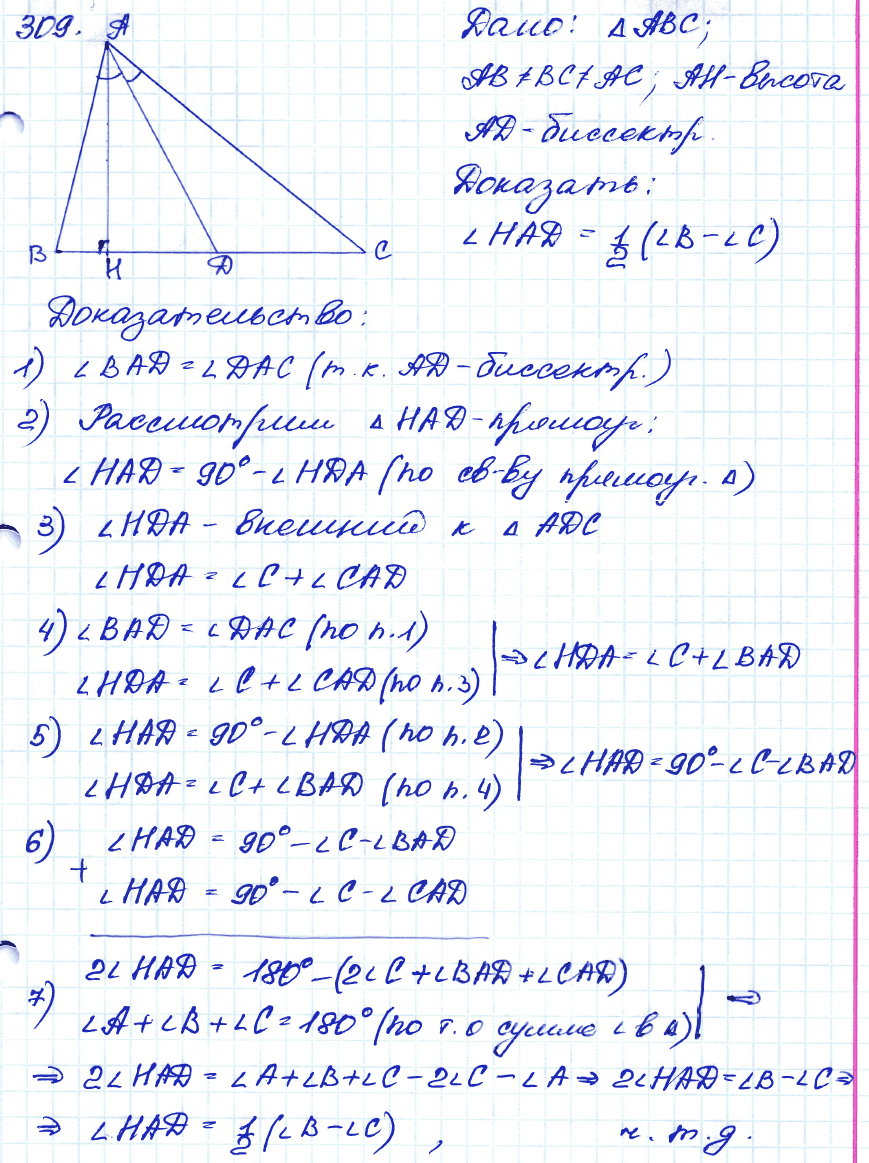 309.
A
B
H
D
C
Дано: △ABC;
AB≠BC≠AC; AH-высота
AD-биссектр.
Доказать:
∠HAD = 1/2 (∠B-∠C)
Доказательство:
1) ∠BAD = ∠DAC (т.к. AD-биссектр.)
2) Рассмотрим △HAD-прямоуг:
∠HAD = 90°-∠HDA (по св-ву прямоуг. △)
3) ∠HDA - внешний к △ADC
∠HDA = ∠C+∠CAD
4) ∠BAD = ∠DAC (по п.1)
∠HDA = ∠C+∠CAD (по п.3) ⇒ ∠HDA = ∠C+∠BAD
5) ∠HAD = 90°-∠HDA (по п.2)
∠HDA = ∠C+∠BAD (по п.4) ⇒ ∠HAD = 90°-∠C-∠BAD
6) ∠HAD = 90°-∠C-∠BAD
+
∠HAD = 90°-∠C-∠CAD
2∠HAD = 180°-(2∠C+∠BAD+∠CAD)
7) ∠A+∠B+∠C = 180° (по т. о сумме ∠ в △) ⇒
⇒ 2∠HAD = ∠A+∠B+∠C-2∠C-∠A ⇒ 2∠HAD = ∠B-∠C ⇒
⇒ ∠HAD = 1/2 (∠B-∠C) , ч.т.д.